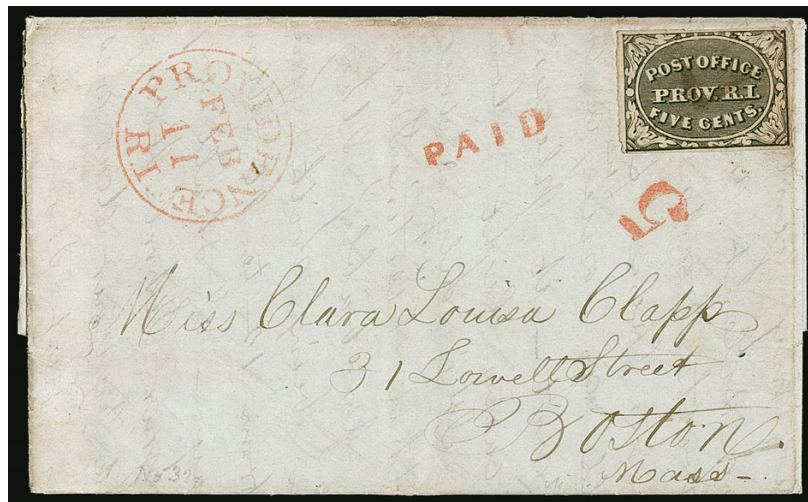 PROVIDENCE R.I.
FEB
11
PAID
POST OFFICE
PROV. R.I.
FIVE CENTS.
5
Miss Clara Louisa Clapp
31 Lowell Street
Boston.
Mass-